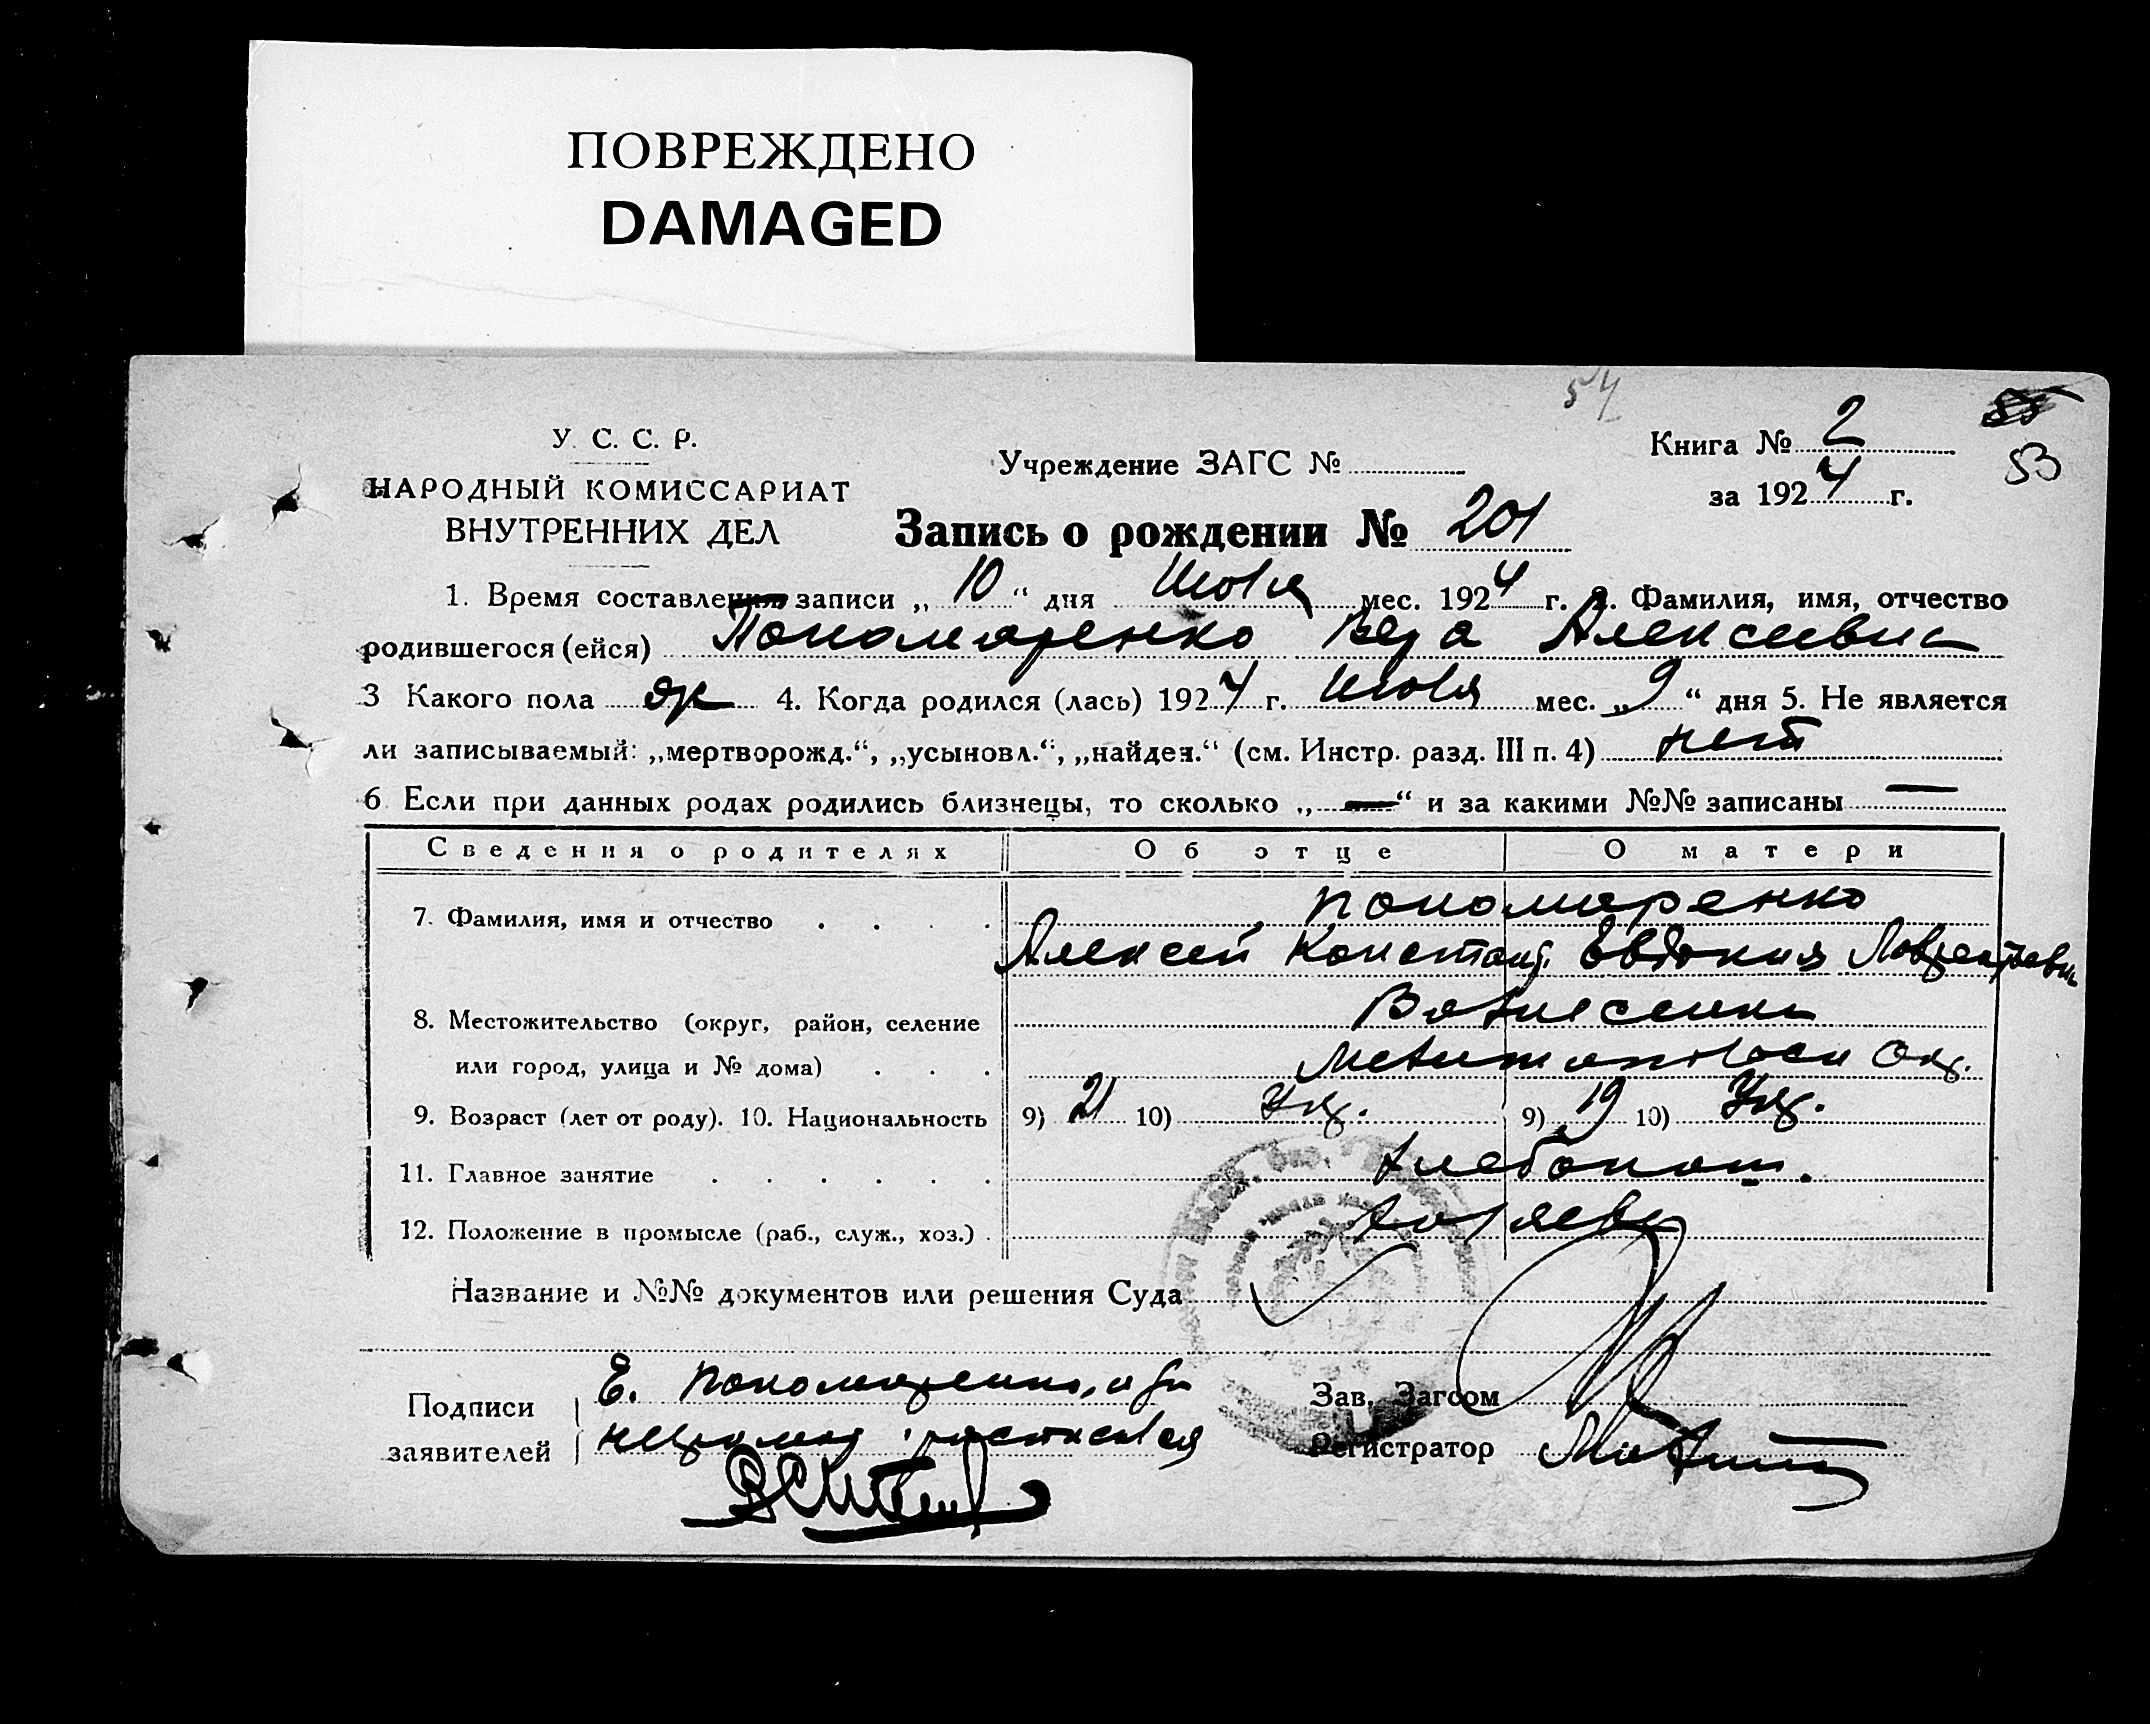 ПОВРЕЖДЕНО
DAMAGED
54
У. С. С. Р.
НАРОДНЫЙ КОМИССАРИАТ
ВНУТРЕННИХ ДЕЛ
Учреждение ЗАГС №
Книга № 2
53
за 1924 г.
Запись о рождении № 201
1. Время составления записи „ 10 “ дня Июля мес. 1924 г. 2. Фамилия, имя, отчество
родившегося (ейся) Пономаренко Вера Алексеевна
3 Какого пола жс 4. Когда родился (лась) 1924 г. Июля мес. „ 9 “ дня 5. Не является
ли записываемый: „мертворожд.“, „усыновл.“, „найден.“ (см. Инстр. разд. III п. 4) нет
6 Если при данных родах родились близнецы, то сколько „ — “ и за какими №№ записаны —
Сведения о родителях Об отце О матери
7. Фамилия, имя и отчество Пономаренко
Алексей Констант. Евдокия
8. Местожительство (округ, район, селение Вознесенка
или город, улица и № дома) Мелитопольск Окр.
9. Возраст (лет от роду). 10. Национальность 9) 21 10) Укр. 9) 19 10) Укр.
11. Главное занятие Хлебопаш.
12. Положение в промысле (раб., служ., хоз.) хозяева
Название и №№ документов или решения Суда
Подписи Е. Пономаренко, а за
заявителей неграмот. расписался
Зав. Загсом
Регистратор